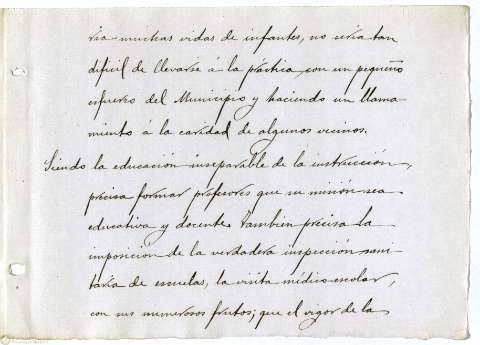 ría muchas vidas de infantes, no sería tan
difícil de llevarse á la práctica con un pequeño
esfuerzo del Municipio y haciendo un llama-
miento á la caridad de algunos vecinos.
Siendo la educación inseparable de la instrucción,
precisa formar profesores que su misión sea
educativa y docente. Tambien precisa la
imposición de la verdadera inspección sani-
taria de escuelas, la visita médico-escolar,
con sus numerosos frutos; que el vigor de la